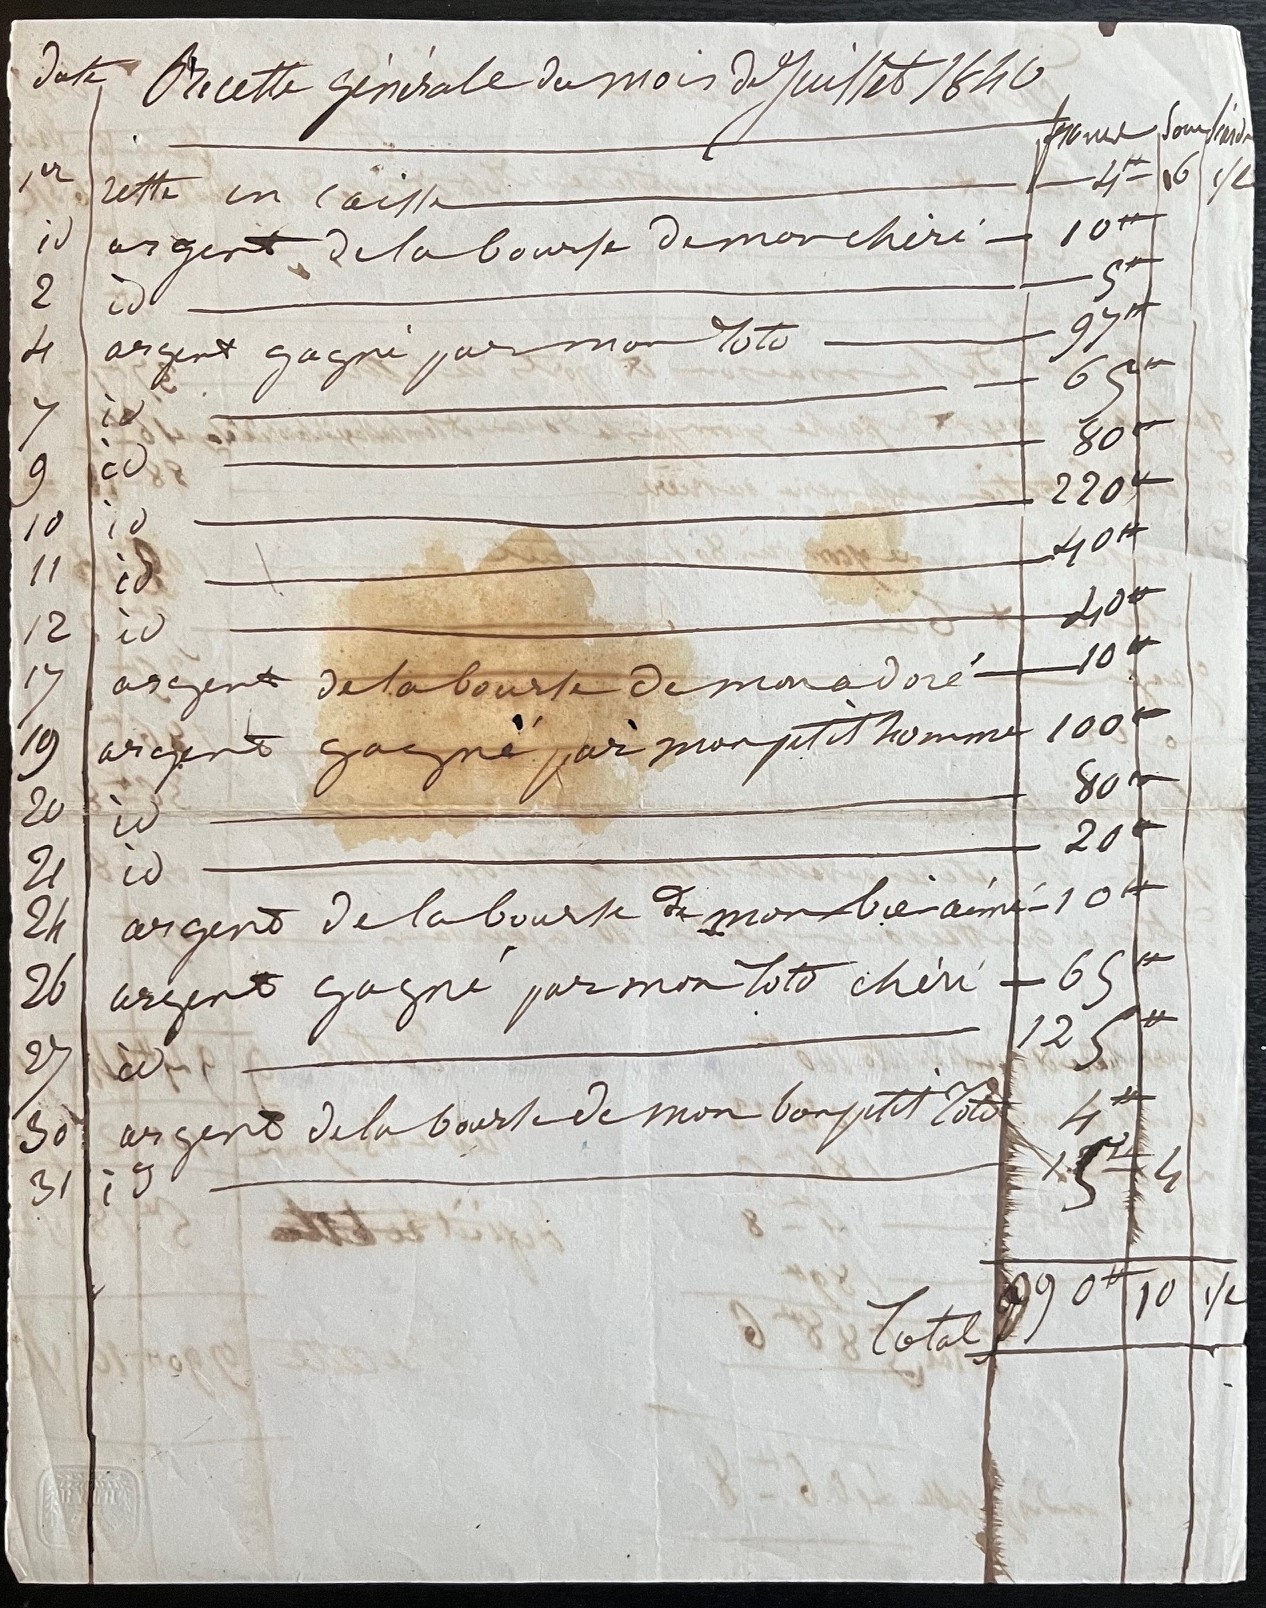 date Recette générale du mois de Juillet 1840
francs sous liards
1er reste en caisse 4# 6 1/2
id argent de la bourse de mon chéri 10#
2 id 5#
4 argent gagné par mon Toto 97#
7 id 65#
9 id 80#
10 id 220#
11 id 40#
12 id 40#
17 argent de la bourse de mon adoré 10#
19 argent gagné par mon petit homme 100#
20 id 80#
21 id 20#
24 argent de la bourse de mon bié-aimé 10#
26 argent gagné par mon Toto chéri 65#
27 id 125#
30 argent de la bourse de mon bon petit Toto 4#
31 id 15# 4
Total 990# 10 1/2